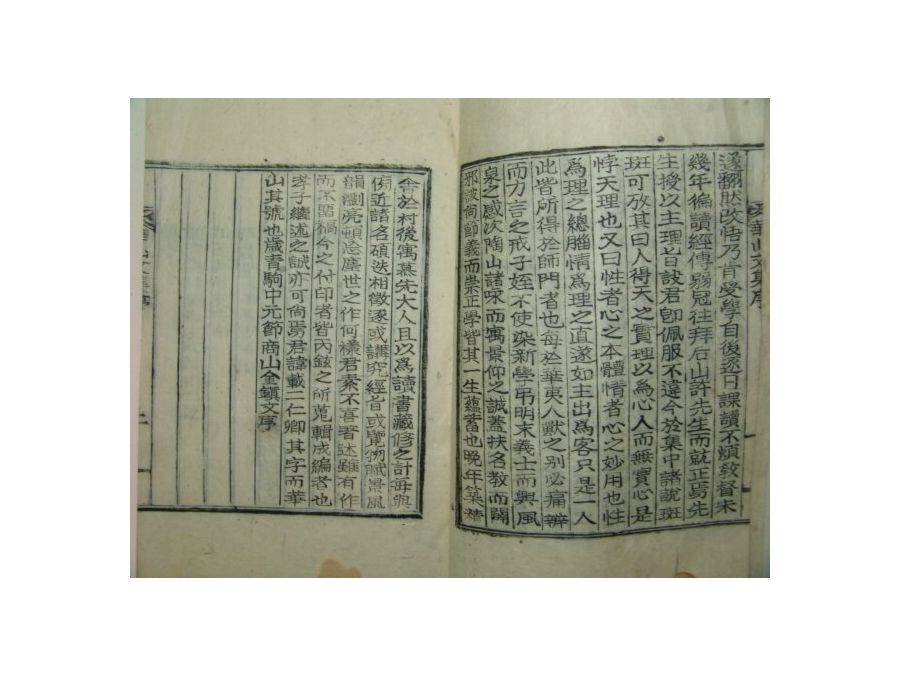 華山文集序
遂翻然改悟乃肯受學自後逐日課讀不煩敎督未
幾年徧讀經傳弱冠往拜后山許先生而就正焉先
生授以主理旨訣君卽佩服不違今於集中諸說斑
斑可放其曰人得天之實理以爲心人而無實心是
悖天理也又曰性者心之本體情者心之妙用也性
爲理之總腦情爲理之直遂如主出爲客只是一人
此皆所得於師門者也每於華夷人獸之別必痛辨
而力言之戒子姪不使染新學弔明末義士而興風
泉之感次陶山諸咏而寓景仰之誠蓋扶名敎而闢
邪詖尙節義而崇正學皆其一生蘊蓄也晩年築精
舍於村後寓慕先大人且以爲讀書藏修之計每與
傍近諸名碩迭相徵逐或講究經旨或覽物賦景風
韻瀏亮頓忘塵世之作何樣君素不喜著述雖有作
而不留稿今之付印者皆內鉉之所蒐輯成編者也
孝子繼述之誠亦可尙焉君諱載二仁卿其字而華
山其號也歲靑駒中元節商山金鎭文序